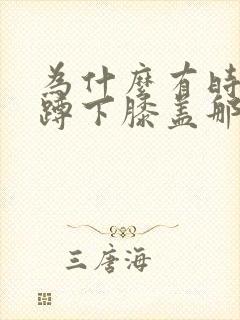 為什麼有時
蹲下膝盖那
三唐海